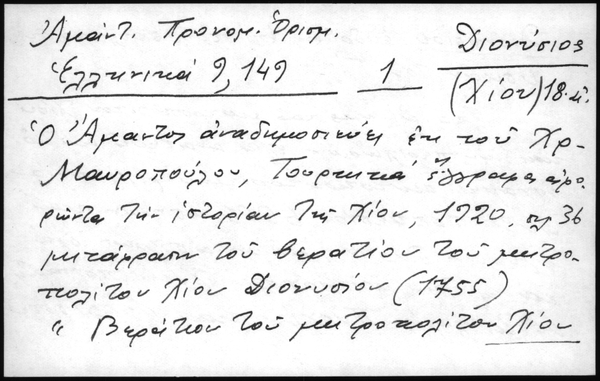 Ἀμάντ. Προνομ. Ὁρισμ.
Ἑλληνικά 9, 149
1
Διονύσιος
(Χίου) 18 αἰ.
Ὁ Ἄμαντος ἀναδημοσιεύει ἐκ τοῦ Χρ.
Μαυροπούλου, Τουρκικά ἔγγραφα ἀφο-
ρῶντα τὴν ἱστορίαν τῆς Χίου, 1920, σελ 36
μετάφρασιν τοῦ βερατίου τοῦ μητρο-
πολίτου Χίου Διονυσίου (1755)
" Βεράτιον τοῦ μητροπολίτου Χίου